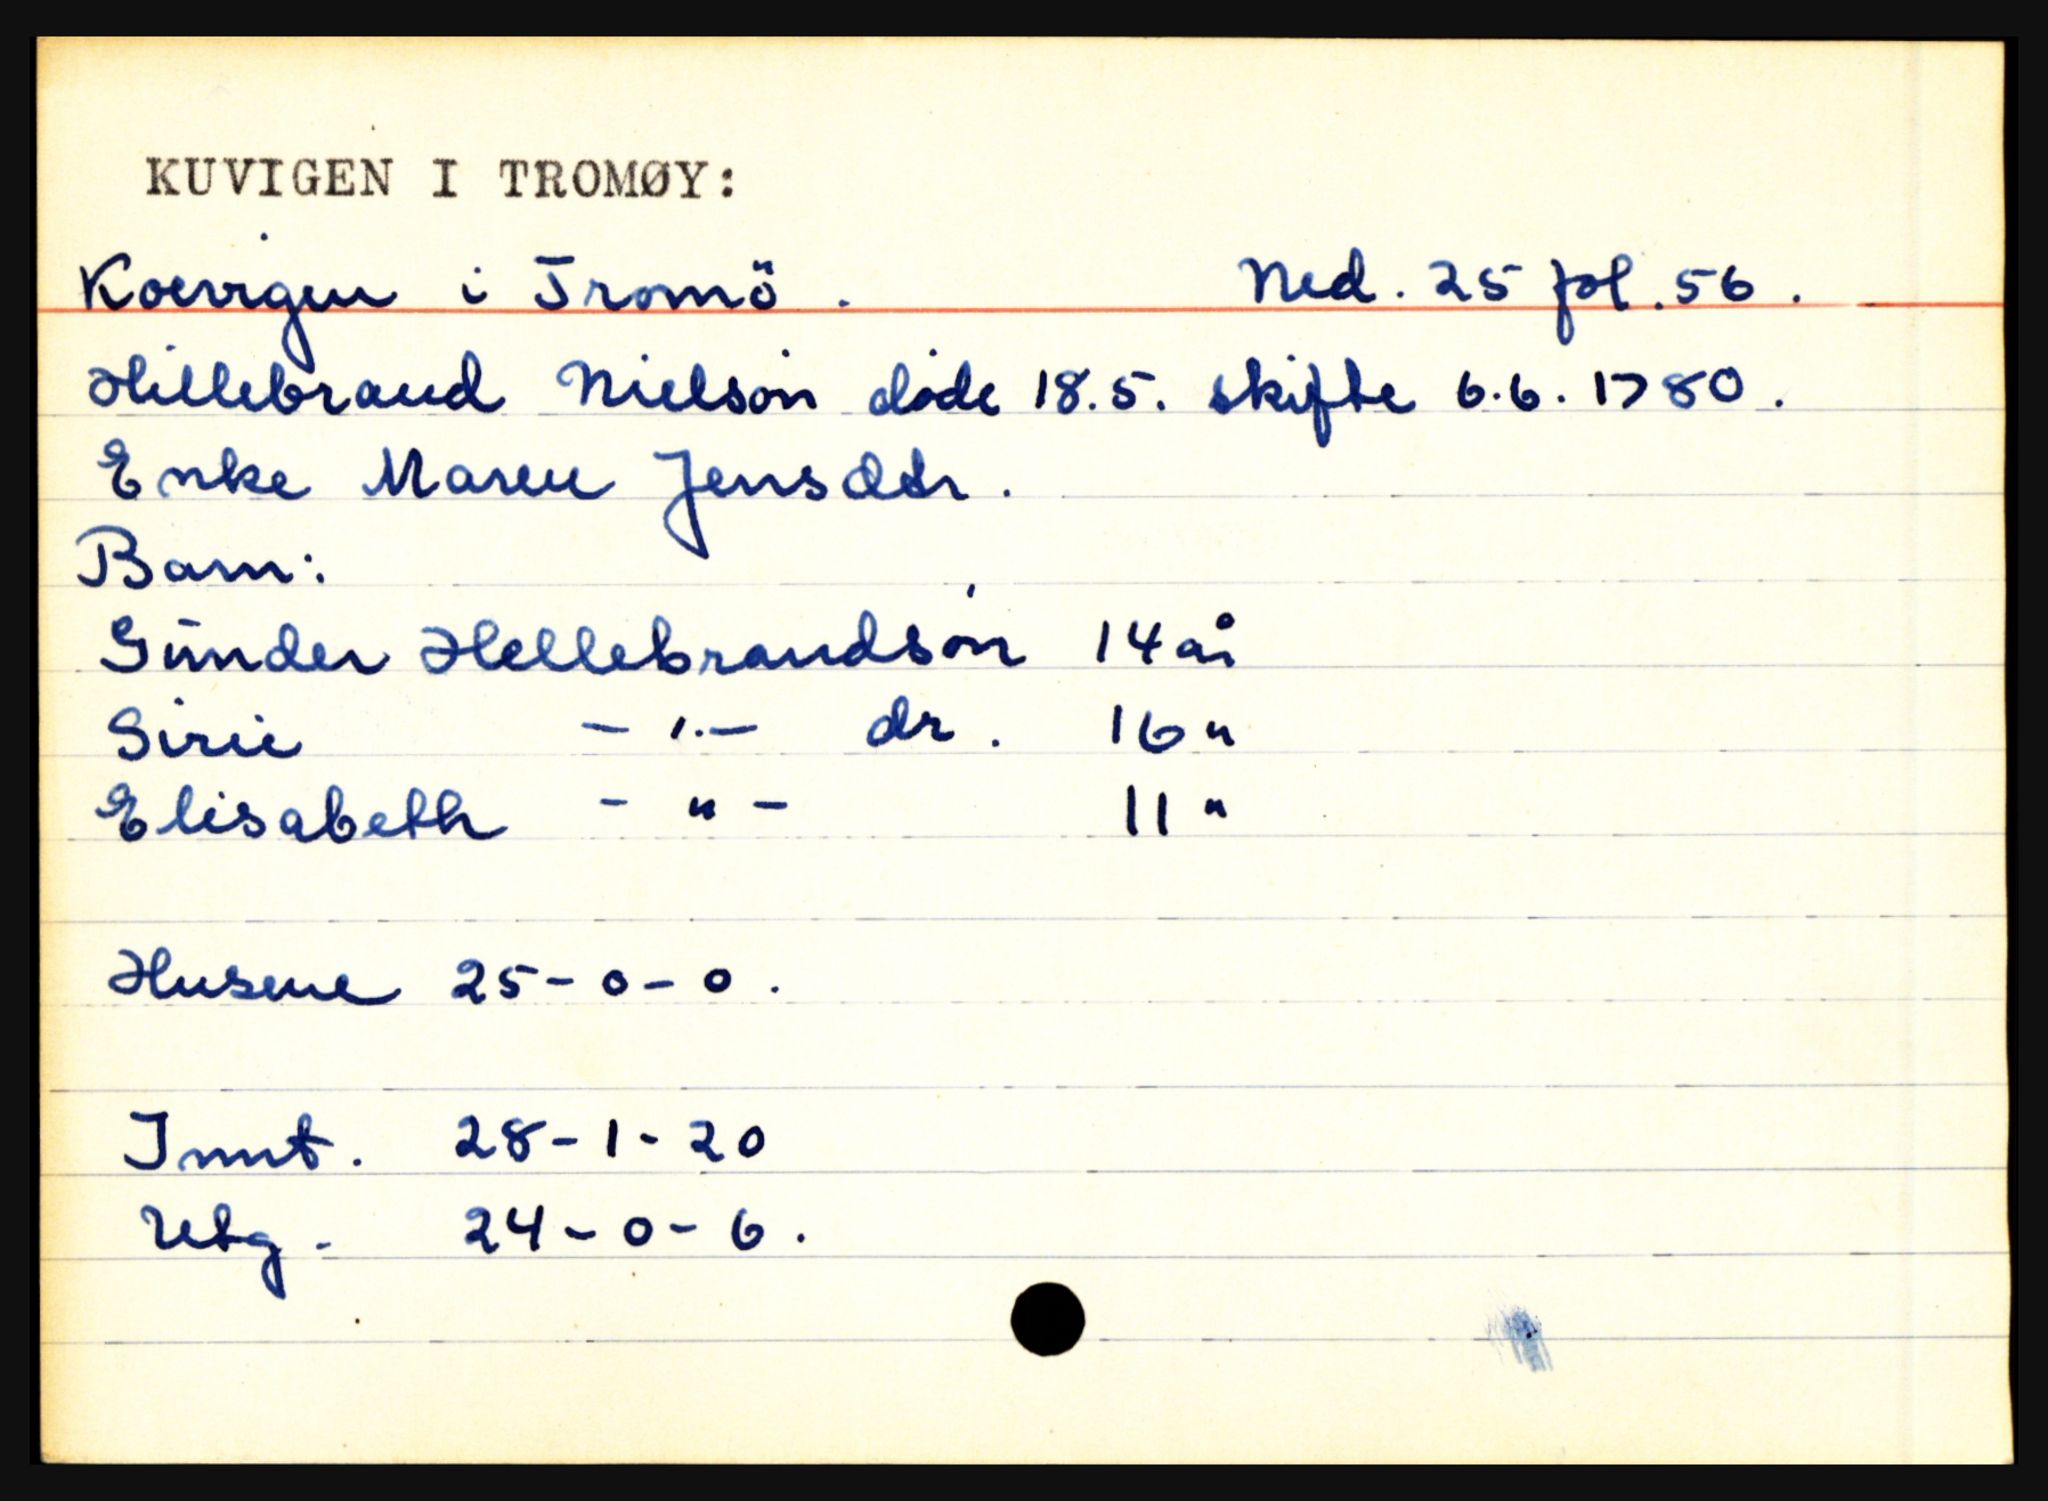 KUVIGEN I TROMØY:
Koevigen i Tromö. Ned. 25 fol. 56.
Hillebrand Nielsøn døde 18.5. skifte 6.6. 1780.
Enke Maren Jensdtr.
Barn:
Gunder Hellebrandsøn 14 år
Sirie - " - dr. 16 "
Elisabeth - " - 11 "
Husene 25-0-0.
Innt. 28-1-20
Utg. 24-0-6.